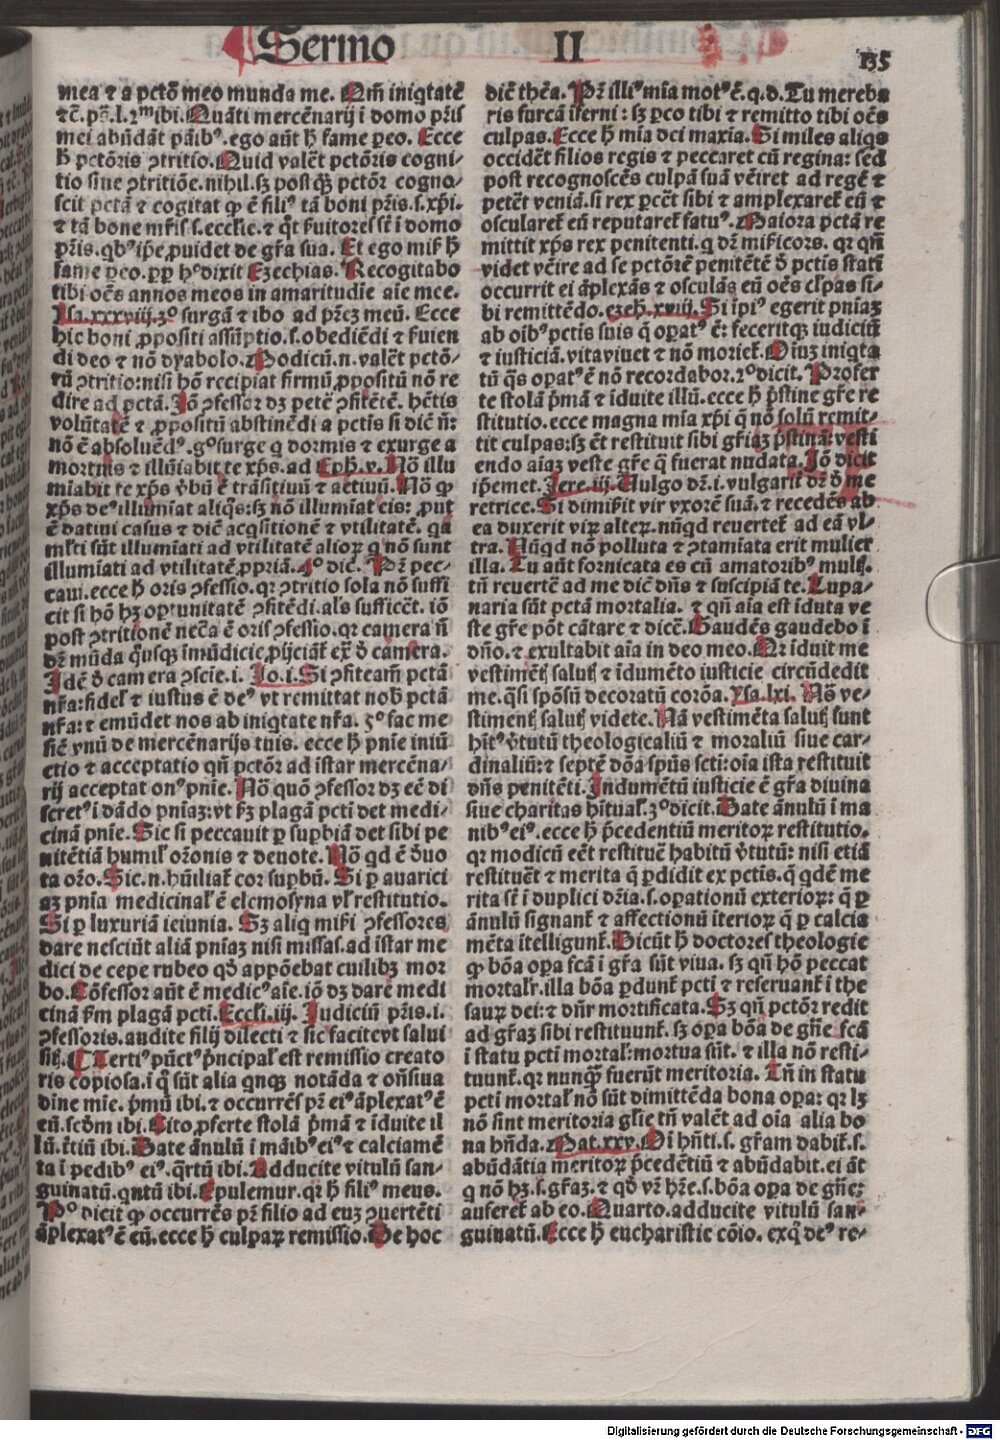 Sermo II
135
mea ⁊ a pctō meo munda me. Qm̄ iniqtatē
⁊c̄. ps̄. l. 2ᵐ ibi. Quāti mercēnarij i domo pr̄is
mei abūdāt pāibꝰ. ego aūt h̄ fame ꝑeo. Ecce
h̄ pctōris ꝯtritio. Quid valēt pctōris cogni/
tio sine ꝯtritiōe. nihil. sꝫ postq̄ꝫ pctōr cogno/
scit pctā ⁊ cogitat ꝙ ē filiꝰ tā boni pr̄is. s. xp̄i.
⁊ tā bone mr̄is s. eccl̄ie. ⁊ q̄t ẜuitores sr̄ i domo
pr̄is. qbꝰ ip̄e ꝓuidet de gr̄a sua. Et ego miẜ h̄
fame ꝑeo. ꝓp h° dixit Ezechias. Recogitabo
tibi oēs annos meos in amaritudīe aīe mee.
Isa. xxxviij. 3° surgā ⁊ ibo ad pr̄eꝫ meū. Ecce
hic boni ꝓpositi assūptio. s. obediēdi ⁊ ẜuien
di deo ⁊ nō dyabolo. Modicū. n. valēt pctō/
rū ꝯtritio: nisi hō recipiat firmū ꝓpositū nō re
dire ad pctā. Iō ꝯfessor dꝫ petē ꝯfitētē. hētis
volūtatē ⁊ ꝓpositū abstinēdi a pctis si dic̄ n̄:
nō ē absoluēdꝰ. g° surge q dormis ⁊ exurge a
mortuis ⁊ illūiabit te xp̄s. ad Eph. v. Nō illu
miabit te xp̄s v̄bū ē trāsitiuū ⁊ actiuū. Nō ꝙ
xp̄s deꝰ illumīat aliqs: sꝫ nō illumīat eis: ꝓut
ē datiui casus ⁊ dic̄ acq̄sitionē ⁊ vtilitatē. qa
ml̄ti sūt illumīati ad vtilitatē alioꝝ q nō sunt
illumīati ad vtilitatē ꝓpriā. 4° dic̄. Pr̄ pec/
caui. ecce h̄ oris ꝯfessio. qꝛ ꝯtritio sola nō suffi
cit si hō hꝫ oportunitatē ꝯfitēdi. als̄ sufficēt. iō
post ꝯtritionē nec̄a ē oris ꝯfessio. qꝛ camera n̄
dꝛ mūda q̄usqꝫ īmūdicie ꝓijciāt̄ ex̄ d̄ camera.
Idē d̄ camera ꝯscie. i. Io. i. Si ꝯfiteam̄ pctā
nr̄a: fidel̄ ⁊ iustus ē deꝰ vt remittat nob̄ pctā
nr̄a: ⁊ emūdet nos ab iniqtate nr̄a. 5° fac me
sic̄ vnū de mercēnarijs tuis. ecce h̄ pnīe iniū
ctio ⁊ acceptatio qn̄ pctōr ad īstar mercēna/
rij acceptat onꝰ pnīe. Nō quō ꝯfessor dꝫ eē di
scretꝰ i dādo pniaꝫ: vt ẜꝫ plagā pcti det medi/
cinā pnīe. Sic si peccauit ꝑ suꝑbiā det sibi pe
nitētiā humil̄ or̄onis ⁊ deuote. Nō qd ē d̄uo
ta or̄o. Sic. n. hūiliat̄ cor suꝑbū. Si ꝑ auarici
aꝫ pnia medicinal̄ ē elemosyna vl̄ restitutio.
Si ꝑ luxuriā ieiunia. Sꝫ aliq miẜi ꝯfessores
dare nesciūt aliā pniaꝫ nisi missas. ad istar me
dici de cepe rubeo qd̄ appōebat cuilibꝫ mor
bo. Cōfessor aūt ē medicꝰ aīe. iō dꝫ dare medi
cinā ẜm plagā pcti. Eccli. iij. Iudiciū pr̄is. i.
ꝯfessoris. audite filij dilecti ⁊ sic facite vt salui
sitꝭ. ¶ Tertiꝰ pūctꝰ p̄ncipal̄ est remissio creato
ris copiosa. i q̄ sūt alia qnqꝫ notāda ⁊ on̄siua
diue mīe. p̄mū ibi. ⁊ occurrēs pr̄ eiꝰ āplexatꝰ ē
eū. scd̄m ibi. Cito ꝓferte stolā p̄mā ⁊ iduite il
lū. t̄tiū ibi. Date ānulū i māibꝰ eiꝰ ⁊ calciamē
ta i pedibꝰ eiꝰ. q̄rtū ibi. Adducite vitulū saḡ/
guinatū. qntū ibi. Epulemur. qꝛ h̄ filiꝰ meus.
P° dicit ꝙ occurrēs pr̄ filio ad euꝫ ꝯuertēti
āplexatꝰ ē eū. ecce h̄ culpaꝝ remissio. De hoc
dic̄ thēa. Pr̄ illiꝰ mīa motꝰ ē. q. d. Tu mereba
ris furcā iferni: sꝫ ꝑco tibi ⁊ remitto tibi oēs
culpas. Ecce h̄ mīa dei maxīa. Si miles aliqs
occidēt filios regis ⁊ peccaret cū regina: sed
post recognoscēs culpā suā vēiret ad regē ⁊
petēt veniā. si rex ꝑcēt sibi ⁊ amplexaret̄ eū ⁊
oscularet̄ eū reputaret̄ fatuꝰ. Maiora pctā re
mittit xp̄s rex penitenti. q dꝛ miẜicors. qꝛ qn̄
videt vēire ad se pctōrē penitētē d̄ pctis statī
occurrit ei āplexās ⁊ osculās eū oēs cl̄pas si/
bi remittēdo. ezeh. xviij. Si ipiꝰ egerit pniaꝫ
ab oibꝰ pctis suis q̄ oꝑatꝰ ē: feceritqꝫ iudiciū
⁊ iusticiā. vita viuet ⁊ nō moriet̄. Oiuꝫ iniqta
tū q̄s oꝑatꝰ ē nō recordabor. 2° dicit. Profer
te stolā p̄mā ⁊ iduite illū. ecce h̄ p̄stine gr̄e re
stitutio. ecce magna mīa xp̄i q̄ nō solū remit/
tit culpas: sꝫ ēt restituit sibi gr̄iaꝫ p̄stinā: vesti
endo aīaꝫ veste gr̄e q̄ fuerat nudata. Iō dicit
ip̄emet. Iere. iij. Uulgo dꝛ. i. vulgarit̄ dꝛ d̄ me
retrice. Si dimiẜit vir vxorē suā. ⁊ recedēs ab
ea duxerit viꝝ alteꝝ. nūqd reuertet̄ ad eā vl/
tra. Nūqd nō polluta ⁊ ꝯtamīata erit mulier
illa. Tu aūt fornicata es cū amatoribꝰ multꝭ.
tn̄ reuertē ad me dic̄ dn̄s ⁊ suscipiā te. Lupa/
naria sūt pctā mortalia. ⁊ qn̄ aīa est iduta ve
ste gr̄e pōt cātare ⁊ dicē. Gaudēs gaudebo i
dn̄o. ⁊ exultabit aīa in deo meo. Qꝛ iduit me
vestimētꝭ salutꝭ ⁊ idumēto iusticie circūdedit
me. q̄si spōsū decoratū corōa. Ysa. lxi. Nō ve/
stimentꝭ salutꝭ videte. Nā vestimēta salutꝭ sunt
hītꝰ v̄tutū theologicaliū ⁊ moraliū siue car/
dinaliū: ⁊ septē dōa spūs scti: oīa ista restituit
dn̄s penitēti. Indumētū iusticie ē gr̄a diuina
siue charitas hītual̄. 3° dicit. Date ānulū i ma
nibꝰ eiꝰ. ecce h̄ p̄cedentiū meritoꝝ restitutio.
qꝛ modicū eēt restituē habitū v̄tutū: nisi etiā
restituēt ⁊ merita q̄ ꝑdidit ex pctis. q̄ qdē me
rita sr̄ i duplici dr̄ia. s. oꝑationū exterioꝝ: q̄ ꝑ
ānulū signant̄ ⁊ affectionū iterioꝝ q̄ ꝑ calcia
mēta itelligunt̄. Dicūt h̄ doctores theologie
ꝙ bōa oꝑa fcā i gr̄a sūt viua. sꝫ qn̄ hō peccat
mortalr̄. illa bōa ꝑdunt̄ pcti ⁊ reseruant̄ i the
sauꝝ dei: ⁊ dn̄r mortificata. Sꝫ qn̄ pctōr redit
ad gr̄aꝫ sibi restituunt̄. sꝫ oꝑa bōa de gn̄e fcā
i statu pcti mortal̄: mortua sūt. ⁊ illa nō resti/
tuunt̄. qꝛ nunq̄ꝫ fuerūt meritoria. Tn̄ in statu
pcti mortal̄ nō sūt dimittēda bona oꝑa: qꝛ lꝫ
nō sint meritoria gl̄ie tn̄ valēt ad oīa alia bo
na hn̄da. Mat. xxv. Oi hn̄ti. s. gr̄am dabit̄. s.
abūdātia meritoꝝ p̄cedētiū ⁊ abūdabit. ei āt
q nō hꝫ. s. gr̄aꝫ. ⁊ qd̄ vr̄ hr̄e. s. bōa oꝑa de gn̄e:
auferet̄ ab eo. Quarto. adducite vitulū san/
guinatū. Ecce h̄ eucharistie cōio. ex q̄ deꝰ re/
Digitalisierung gefördert durch die Deutsche Forschungsgemeinschaft - DFG